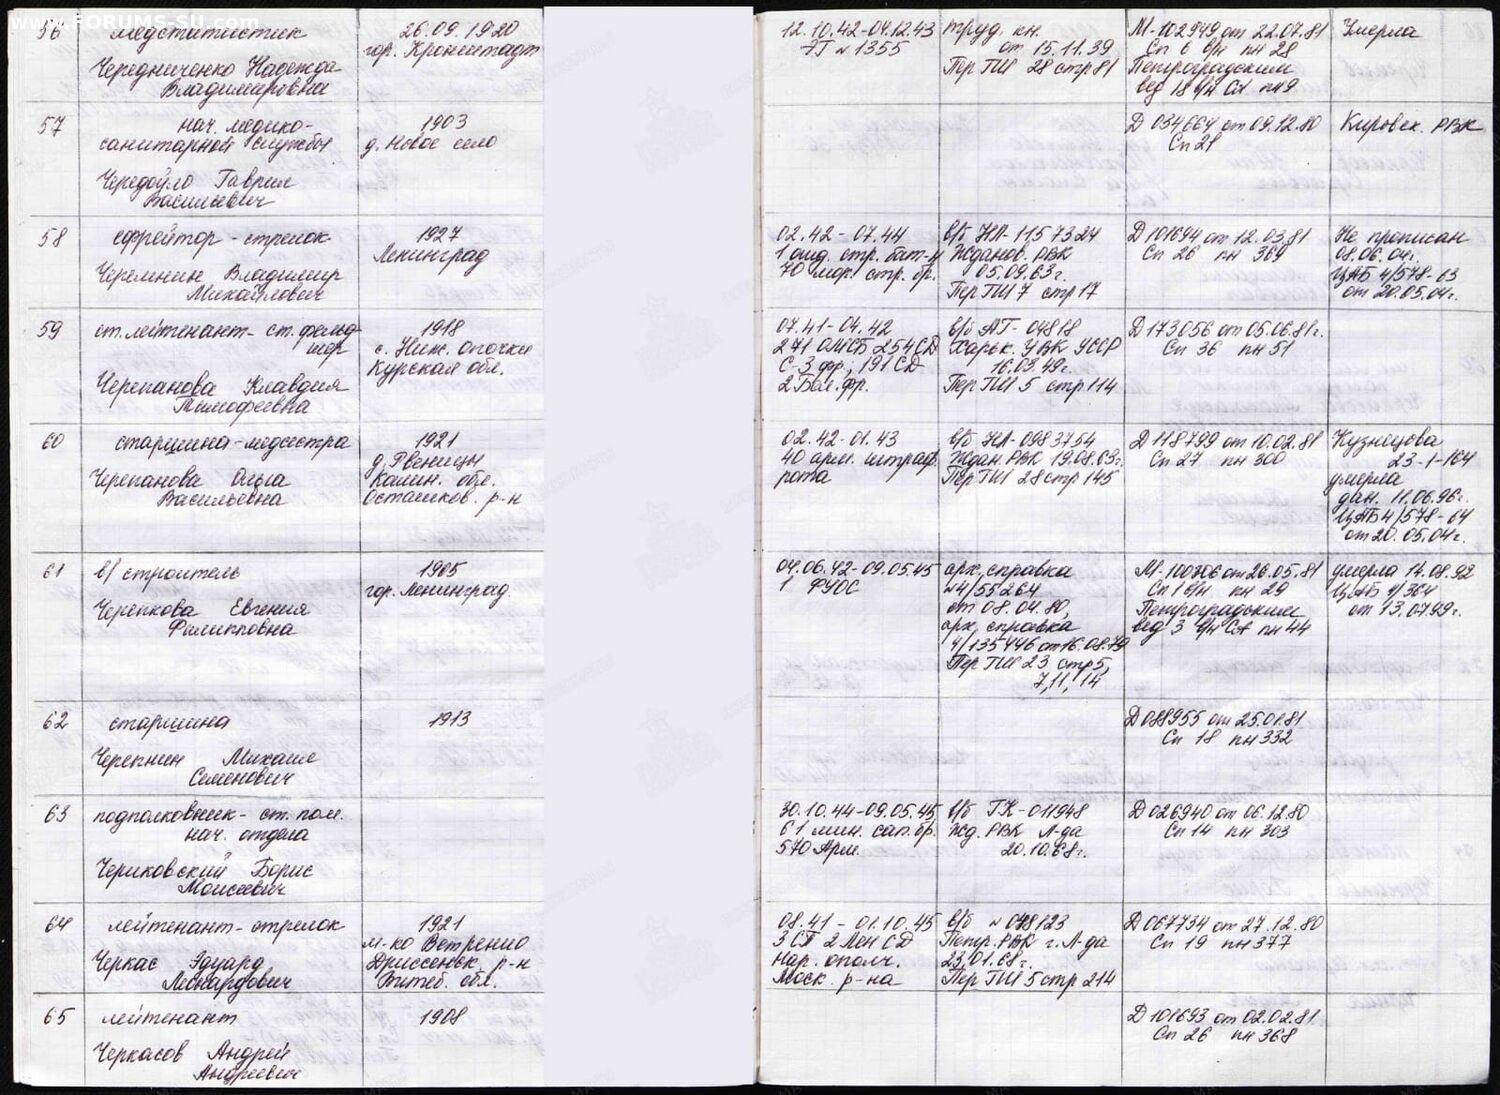 www.FORUMS-SU.com
56 медстатистик
Чередниченко Надежда
Владимировна
26.09.1920
гор. Кронштадт
12.10.42-04.12.43
ЭГ №1355
Труд. кн.
от 15.11.39
Пер ТШ 28 стр 81
М-102949 от 22.07.81
Сп 6 б/н пн 28
Петроградским
вед 18 б/н СА пн9
Умерла
57 нач. медико-
санитарной службы
Гаврил
Васильевич
1903
д. Новое село
Д 034664 от 09.12.80
Сп 21
Кировск. РВК
58 ефрейтор - стрелок
Черемнин Владимир
Михайлович
1927
Ленинград
02.42 - 07.44
1 отд. стр. бат-н
70 мор. стр. бр.
в/б НЛ-1157324
Жданов. РВК
05.09.63г.
Пер ТШ 7 стр 17
Д 101694 от 12.03.81
Сп 26 пн 369
Не прописан
08.06.04г.
ЦАБ 4/578-63
от 20.05.04г.
59 ст. лейтенант - ст. фельд-
шер
Черепанова Клавдия
Тимофеевна
1918
с. Ниж. Опочки
Курская обл.
07.41-04.42
271 ОМСБ 254 СД
С-З фр., 191 СД
2 Бел. фр.
в/б АТ-04818
Харьк. УВК УССР
16.03.49г.
Пер ТШ 5 стр 114
Д 173056 от 05.06.81г.
Сп 36 пн 51
60 старшина - медсестра
Черепанова Ольга
Васильевна
1921
д. Гвеницы
Калин. обл.
Осташков. р-н
02.42-01.43
40 арм. штраф.
рота
в/б НЛ-0983754
Ждан. РВК 19.08.63г.
Пер ТШ 28 стр 145
Д 118799 от 10.02.81
Сп 27 пн 300
Кузнецова
23-1-164
умерла
дан. 11.06.96г.
ЦАБ 4/578-64
от 20.05.04г.
61 в/строитель
Черепкова Евгения
Филипповна
1905
гор. Ленинград
04.06.42-09.05.45
1 ФУОС
арх. справка
№4/55264
от 08.04.80,
арх. справка
4/135446 от 16.08.79
Пер ТШ 23 стр 5,
7, 11, 14
М-100706 от 26.05.81
Сп 1 б/н пн 29
Петроградским
вед 3 б/н СА пн 44
умерла 14.08.92
ЦАБ 4/364
от 13.07.99г.
62 старшина
Черепнин Михаил
Семенович
1913
Д 088955 от 25.01.81
Сп 18 пн 332
63 подполковник - ст. пом.
нач. отдела
Чериковский Борис
Моисеевич
30.10.44-09.05.45
61 мин. сап. бр.
570 Арм.
в/б ГК-011948
Жд. РВК Л-да
20.10.68г.
Д 026940 от 06.12.80
Сп 14 пн 303
64 лейтенант - стрелок
Черкас Эдуард
Леонардович
1921
м-ко Ветренно
Дриссенск. р-н
Витеб. обл.
08.41 - 01.10.45
3 СП 2 Лен СД
Нар. ополч.
Моск. р-на
в/б №048123
Петр. РВК г. Л-да
23.01.68г.
Пер ТШ 5 стр 214
Д 067734 от 27.12.80
Сп 19 пн 377
65 лейтенант
Черкасов Андрей
Андреевич
1908
Д 101693 от 02.02.81
Сп 26 пн 368